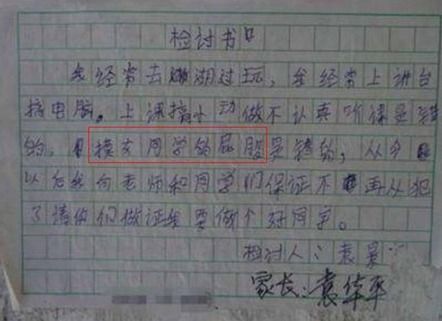 检讨书
我经常去湖过玩，我经常上讲台
搞电脑。上课搞小动做不认真听课是错
的。摸女同学的屁股是错的，从今
以后我向老师和同学们保证不再从犯
了请你们做证我要做个好同学。
检讨人：袁昊
家长：袁华平